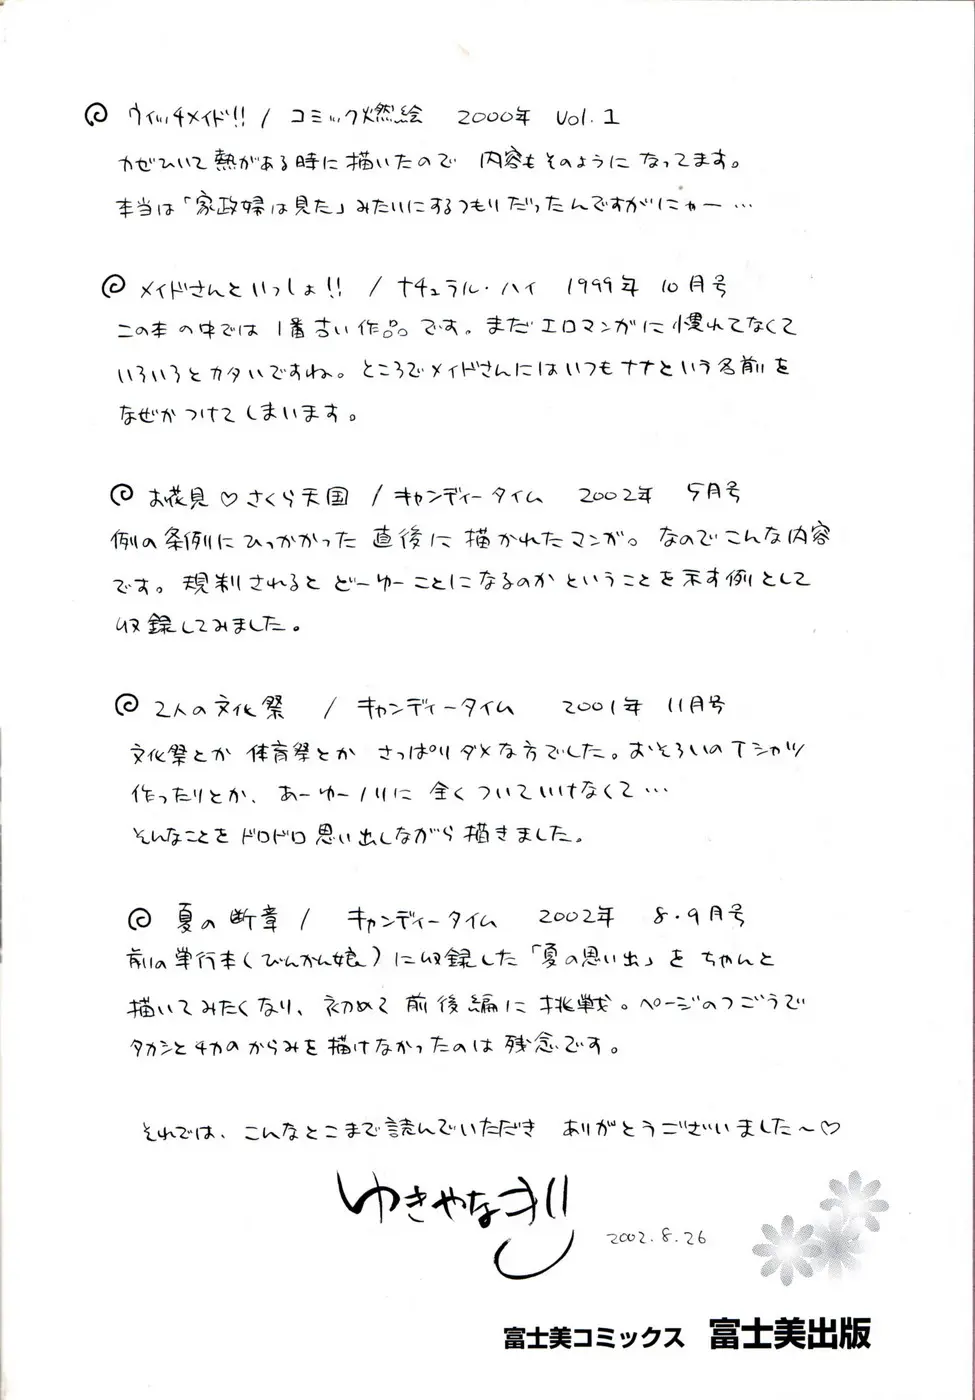 ウィッチメイド!! / コミック燃絵 2000年 Vol.1
カゼひいて熱がある時に描いたので 内容もそのように なってます。
本当は「家政婦は見た」みたいにするつもりだったんですがにゃー…
メイドさんといっしょ!! / ナチュラル・ハイ 1999年 10月号
この本の中では 1番古い作品です。まだエロマンガに慣れてなくて
いろいろとカタいですね。ところでメイドさんにはいつもナナという名前を
なぜかつけてしまいます。
お花見♡さくら天国 / キャンディータイム 2002年 5月号
例の条例にひっかかった直後に描かれたマンガ。なのでこんな内容
です。規制されるとどーゆーことになるのかということを示す例として
収録してみました。
2人の文化祭 / キャンディータイム 2001年 11月号
文化祭とか 体育祭とか さっぱりダメな方でした。おそろいのTシャツ
作ったりとか、あーゆーノリに 全くついていけなくて…
そんなことをドロドロ思い出しながら描きました。
夏の断章 / キャンディータイム 2002年 8・9月号
前の単行本(びんかん娘)に収録した「夏の思い出」をちゃんと
描いてみたくなり、初めて前後編に挑戦。ページのつごうで
タカシとチカのからみを描けなかったのは残念です。
それでは、こんなとこまで読んでいただき ありがとうございました〜♡
ゆきやなぎ
2002.8.26
富士美コミックス 富士美出版